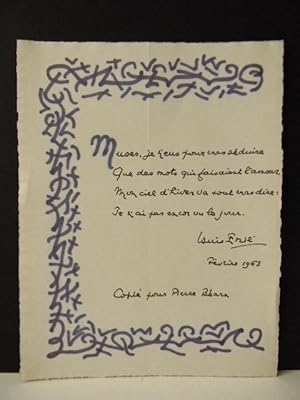 Muses, je n'eus pour vous séduire
Que des mots qui faisaient l'amour.
Mon ciel d'hiver va tout vous dire:
Je n'ai pas encor vu le jour.
Louis Émié
Février 1963
Copié pour Pierre Béarn